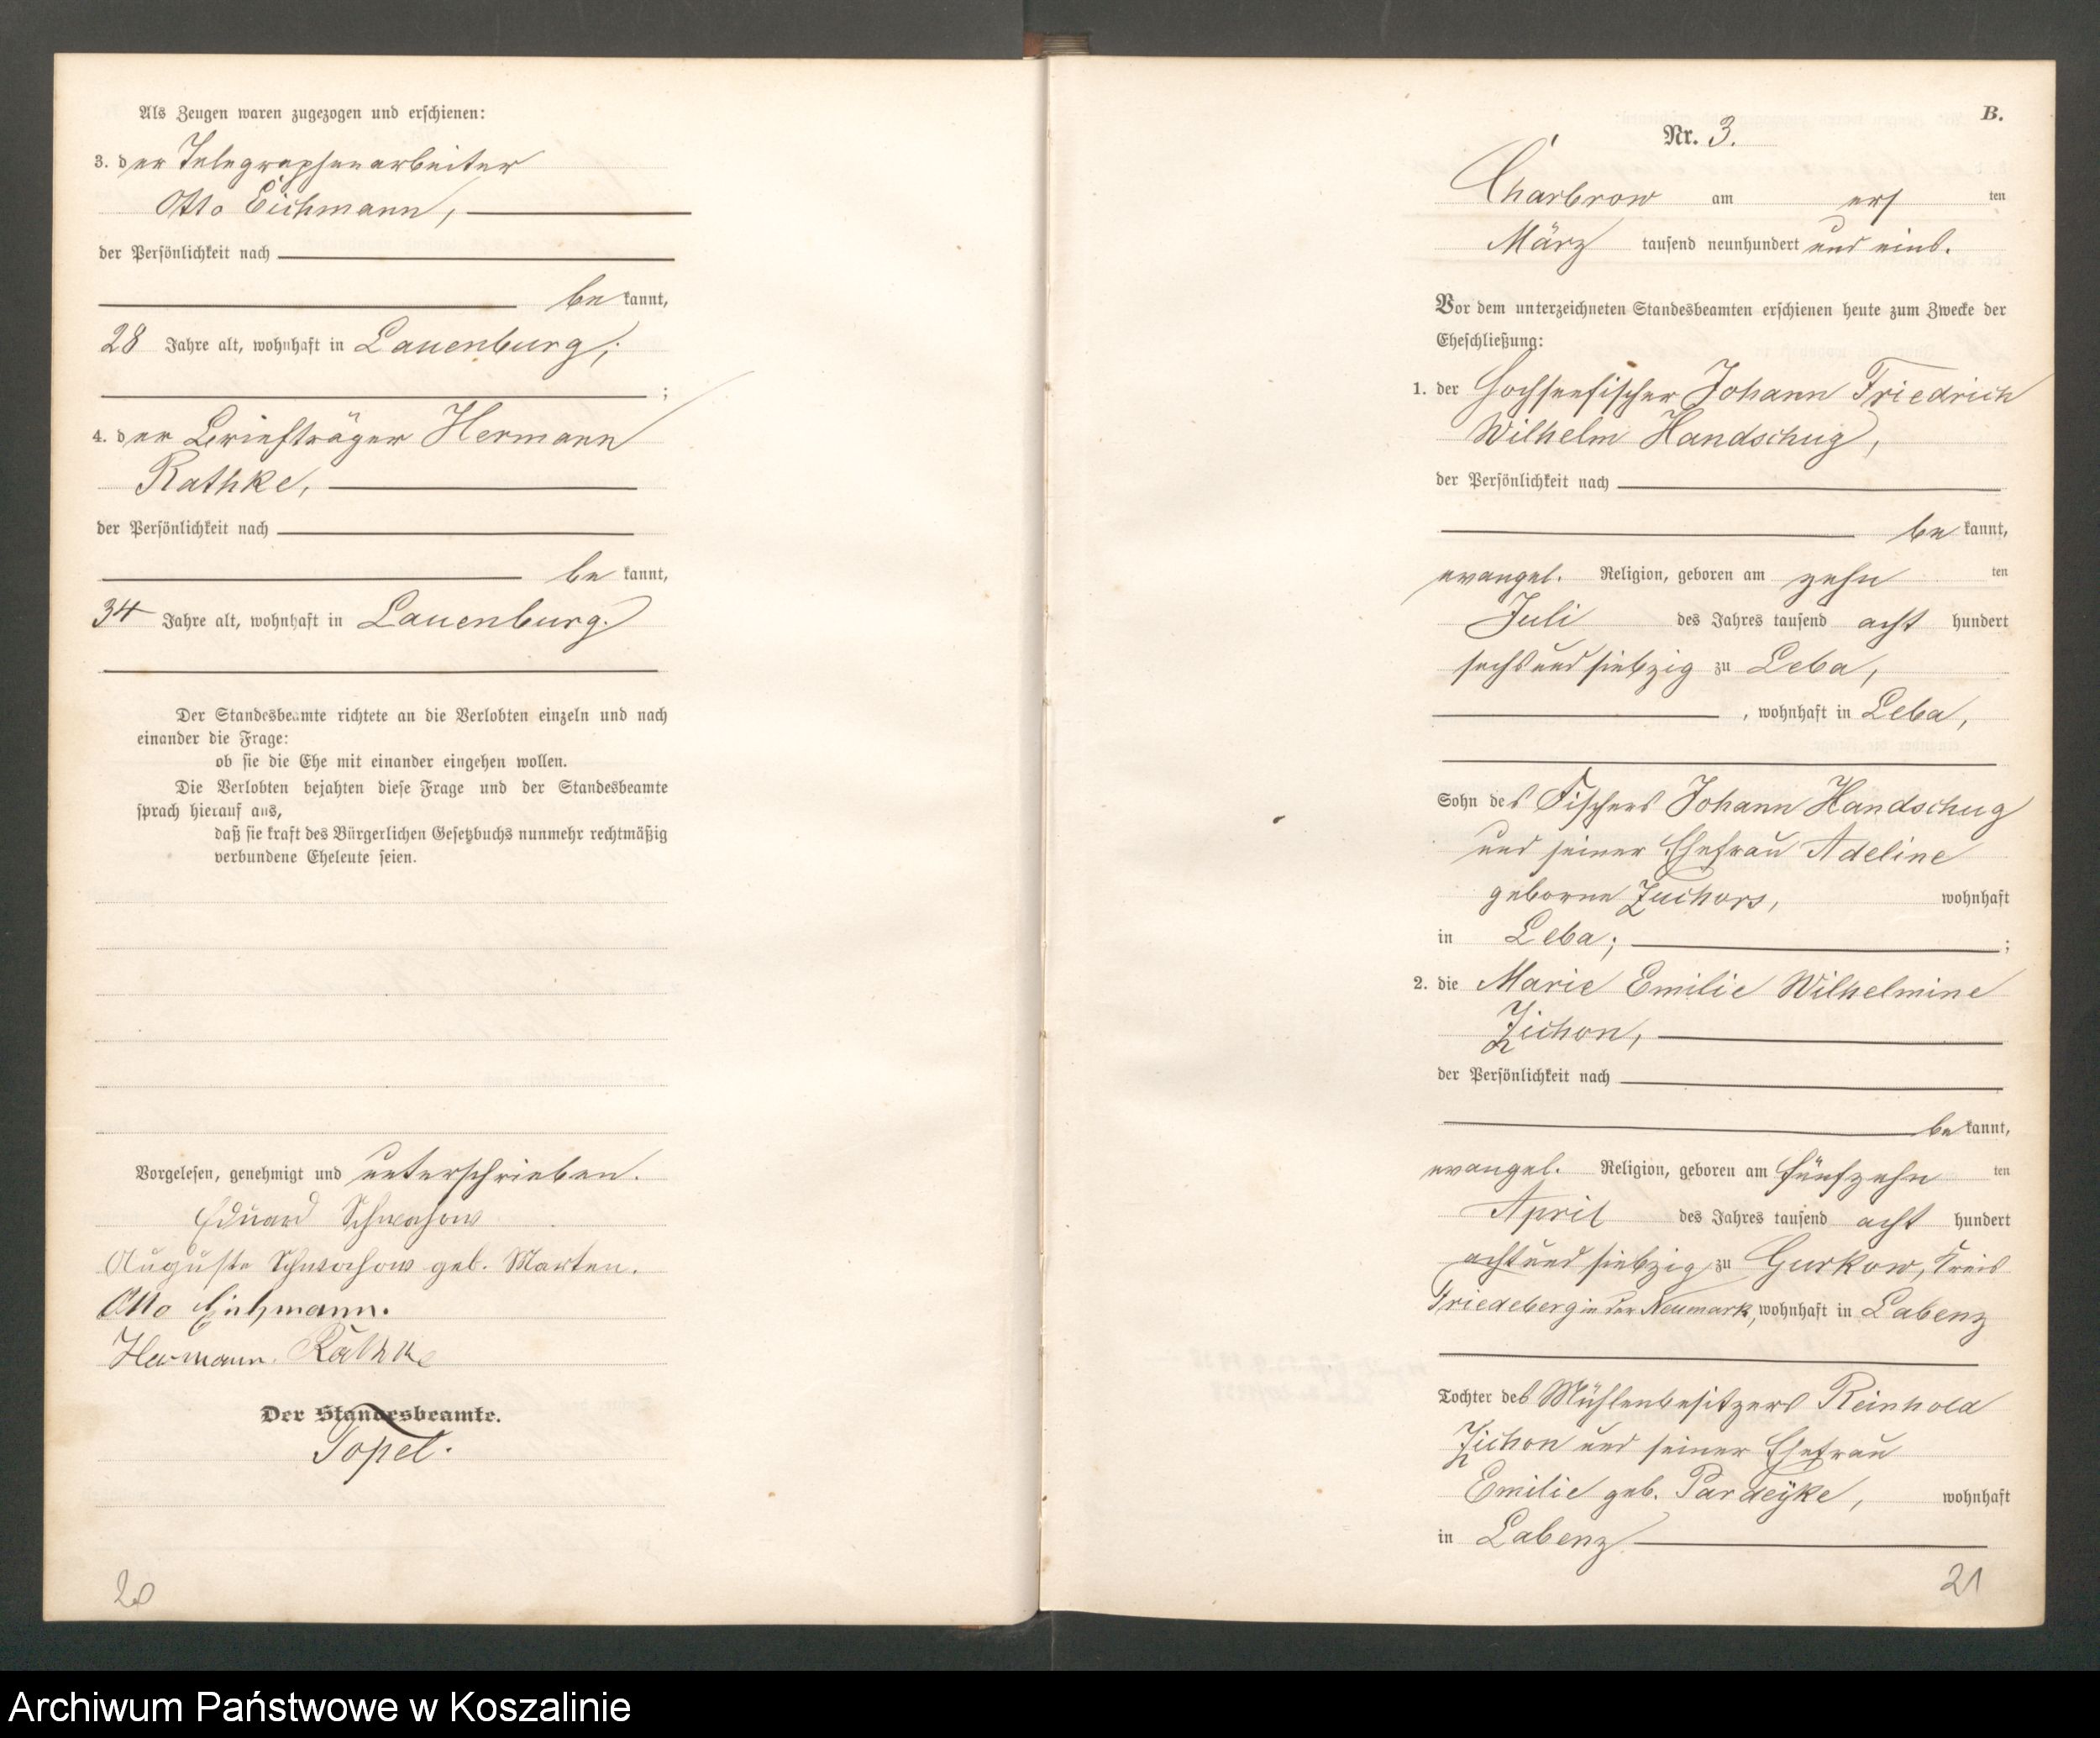 Als Zeugen waren zugezogen und erschienen:
3. der Telegraphenarbeiter
Otto Eichmann,
der Persönlichkeit nach
be kannt,
28 Jahre alt, wohnhaft in Lauenburg;
;
4. der Briefträger Hermann
Rathke,
der Persönlichkeit nach
be kannt,
34 Jahre alt, wohnhaft in Lauenburg.
Der Standesbeamte richtete an die Verlobten einzeln und nach
einander die Frage:
ob sie die Ehe mit einander eingehen wollen.
Die Verlobten bejahten diese Frage und der Standesbeamte
sprach hierauf aus,
daß sie kraft des Bürgerlichen Gesetzbuchs nunmehr rechtmäßig
verbundene Eheleute seien.
Vorgelesen, genehmigt und unterschrieben.
Eduard Schwochow
Auguste Schwochow geb. Marten.
Otto Eichmann.
Hermann Rathke
Der Standesbeamte.
Topel.
20
B.
Nr. 3.
Charbrow am ers ten
März tausend neunhundert und eins.
Vor dem unterzeichneten Standesbeamten erschienen heute zum Zwecke der
Eheschließung:
1. der Hochseefischer Johann Friedrich
Wilhelm Handschug,
der Persönlichkeit nach
be kannt,
evangel. Religion, geboren am zehn ten
Juli des Jahres tausend acht hundert
sechsundsiebzig zu Leba,
, wohnhaft in Leba,
Sohn des Fischers Johann Handschug
und seiner Ehefrau Adeline
geborne Zuchors, wohnhaft
in Leba; ;
2. die Marie Emilie Wilhelmine
Zichon,
der Persönlichkeit nach
be kannt,
evangel. Religion, geboren am fünfzehn ten
April des Jahres tausend acht hundert
achtundsiebzig zu Gurkow, Kreis
Friedeberg in der Neumark, wohnhaft in Labenz
Tochter des Mühlenbesitzers Reinhold
Zichon und seiner Ehefrau
Emilie geb. Pardeyke, wohnhaft
in Labenz
21
Archiwum Państwowe w Koszalinie